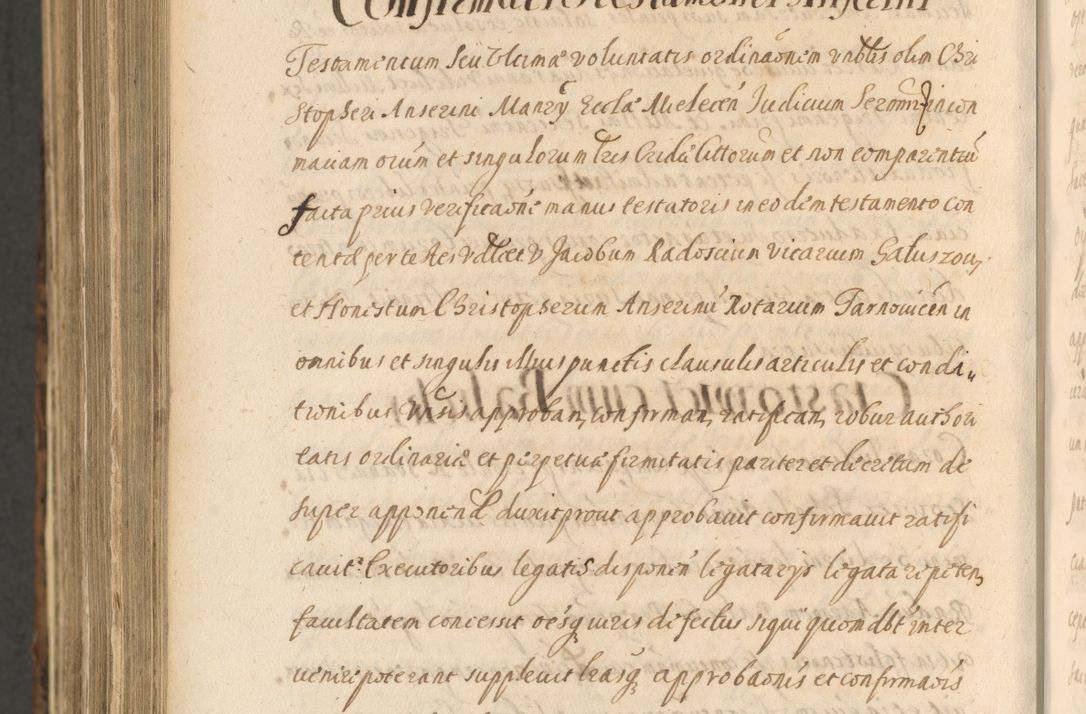 Confirmatio testamenti Anserini
Testamentum seu Vltimæ voluntatis ordinaõnem vnblis olim Chri
stopheri Anserini Manry Eccla Mielecen Iudicium
matiam oium et singulorum Citt littorum et non comparentiũ
facta prius verificaõne manus testatoris in eodem testamento con
tentæ per testes vdlcet v Jacobum Radoscium vicarium Galuszou,
et Honestum Christopherum Anserinũ Notarium Tarnouicen in
omnibus et singulis illius punctis clausulis articulis et condi„
tionibus approban, confirman, ratifican, robur authori
tatis ordinariæ et perpetuæ firmitatis pariter et decretum de
super apponend duxit prout approbauit confirmauit ratifi
cauit Executoribus legatis disponen legatarys legata repeten,
facultatem concessit oẽsq iuris defectus siqui quomdbt inter
uenire poterant suppleuit hasq approbaõnis et confirmaõis